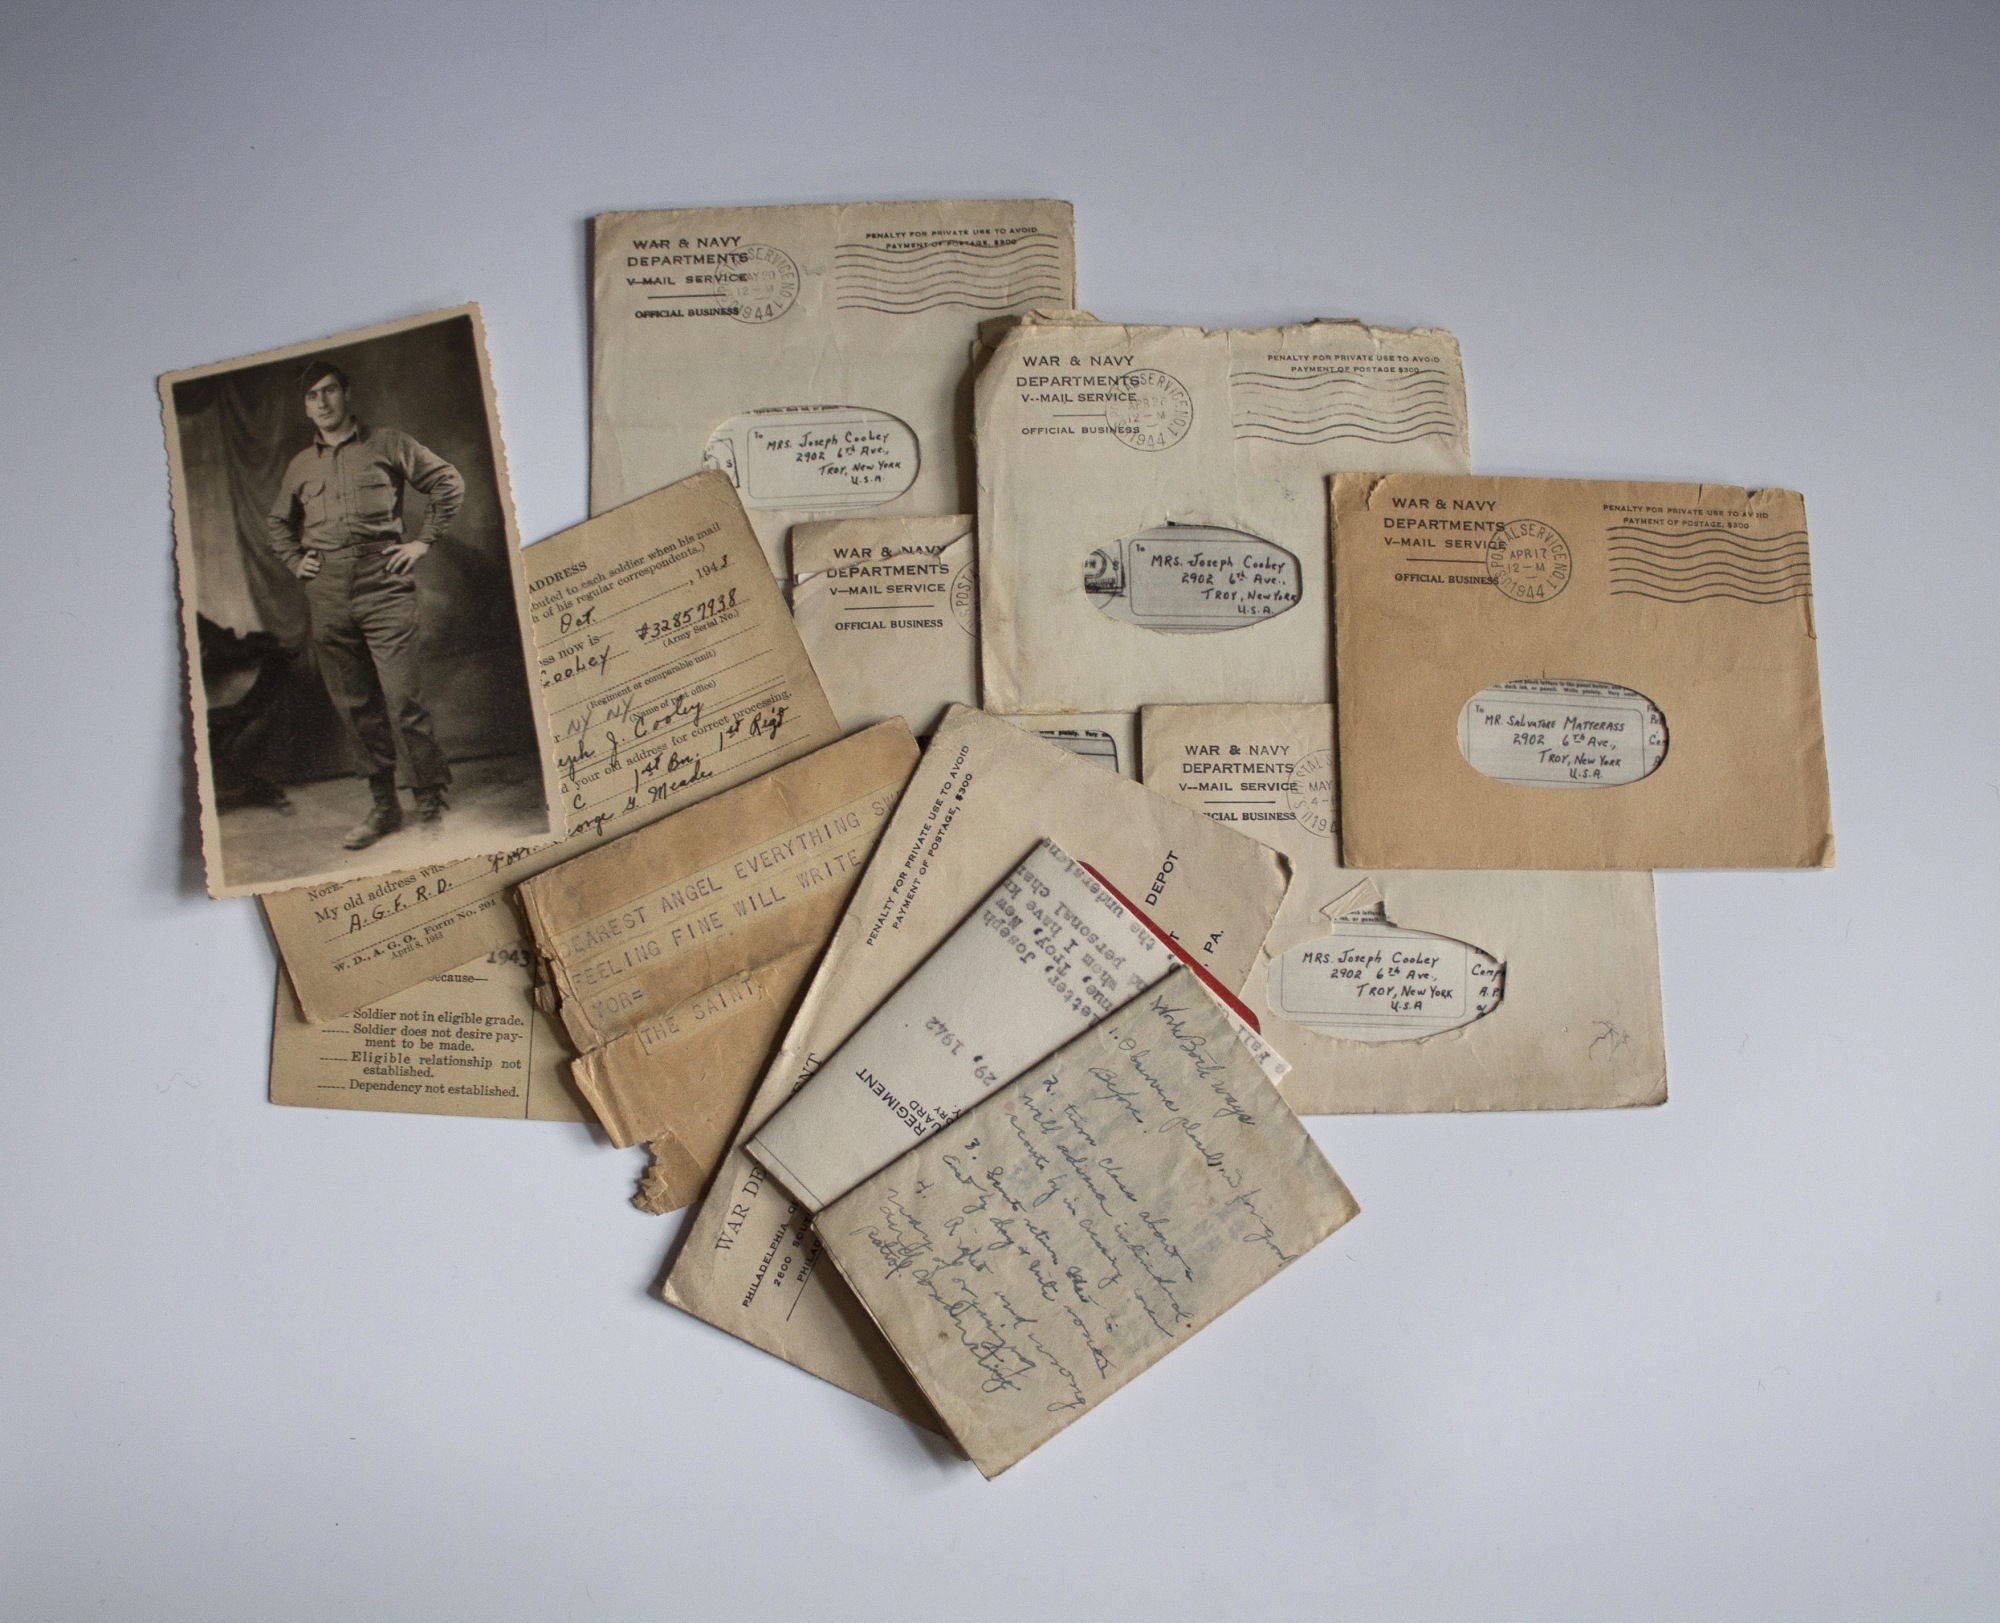 WAR & NAVY
DEPARTMENTS
V-MAIL SERVICE
OFFICIAL BUSINESS
POSTAL SERVICE NO. 1
MAY 20
12-M
1944
PENALTY FOR PRIVATE USE TO AVOID
PAYMENT OF POSTAGE, $300
To
MRS. Joseph Cooley
2902 6th Ave.,
Troy, New York
U.S.A.
WAR & NAVY
DEPARTMENTS
V--MAIL SERVICE
OFFICIAL BUSINESS
POSTAL SERVICE NO. 1
APR
12-M
1944
PENALTY FOR PRIVATE USE TO AVOID
PAYMENT OF POSTAGE $300
To
MRS. Joseph Cooley
2902 6th Ave..
Troy, New York
U.S.A.
WAR & NAVY
DEPARTMENTS
V-MAIL SERVICE
OFFICIAL BUSINESS
POSTAL SERVICE NO. 1
APR 17
12-M
1944
PENALTY FOR PRIVATE USE TO AVOID
PAYMENT OF POSTAGE, $300
To
MR. Salvatore Matterass
2902 6th Ave.,
Troy, New York
U.S.A.
WAR & NAVY
DEPARTMENTS
V—MAIL SERVICE
OFFICIAL BUSINESS
WAR & NAVY
DEPARTMENTS
V--MAIL SERVICE
OFFICIAL BUSINESS
MAY
MRS. Joseph Cooley
2902 6th Ave.,
Troy, New York
U.S.A
ADDRESS
buted to each soldier when his mail
h of his regular correspondents.)
Oct. , 1943
ss now is—
Cooley #32857938
(Army Serial No.)
(Regiment or comparable unit)
NY NY
(Name of post office)
eph J. Cooley
d your old address for correct processing.
C 1st Bn. 1st Reg't
orge G. Meade
My old address was
A.G.F. R.D.
W. D., A. G. O. Form No. 204
April 8, 1943
1943
ecause—
Soldier not in eligible grade.
Soldier does not desire pay-
ment to be made.
Eligible relationship not
established.
Dependency not established.
DEAREST ANGEL EVERYTHING SW
FEELING FINE WILL WRITE
YOR=
THE SAINT
PENALTY FOR PRIVATE USE TO AVOID
PAYMENT OF POSTAGE, $300
DEPOT
PA.
WAR DE
PHILADELPHIA
2800 SOU
PHILAD
Joseph
Troy, New
the
personal
29, 1942
REGIMENT
Work Both ways
1. Observe
Before.
2. turn class about
will advance individual.
scouts by
3. Scouts return
East by day &
4. Right and wrong
way of
patrol.